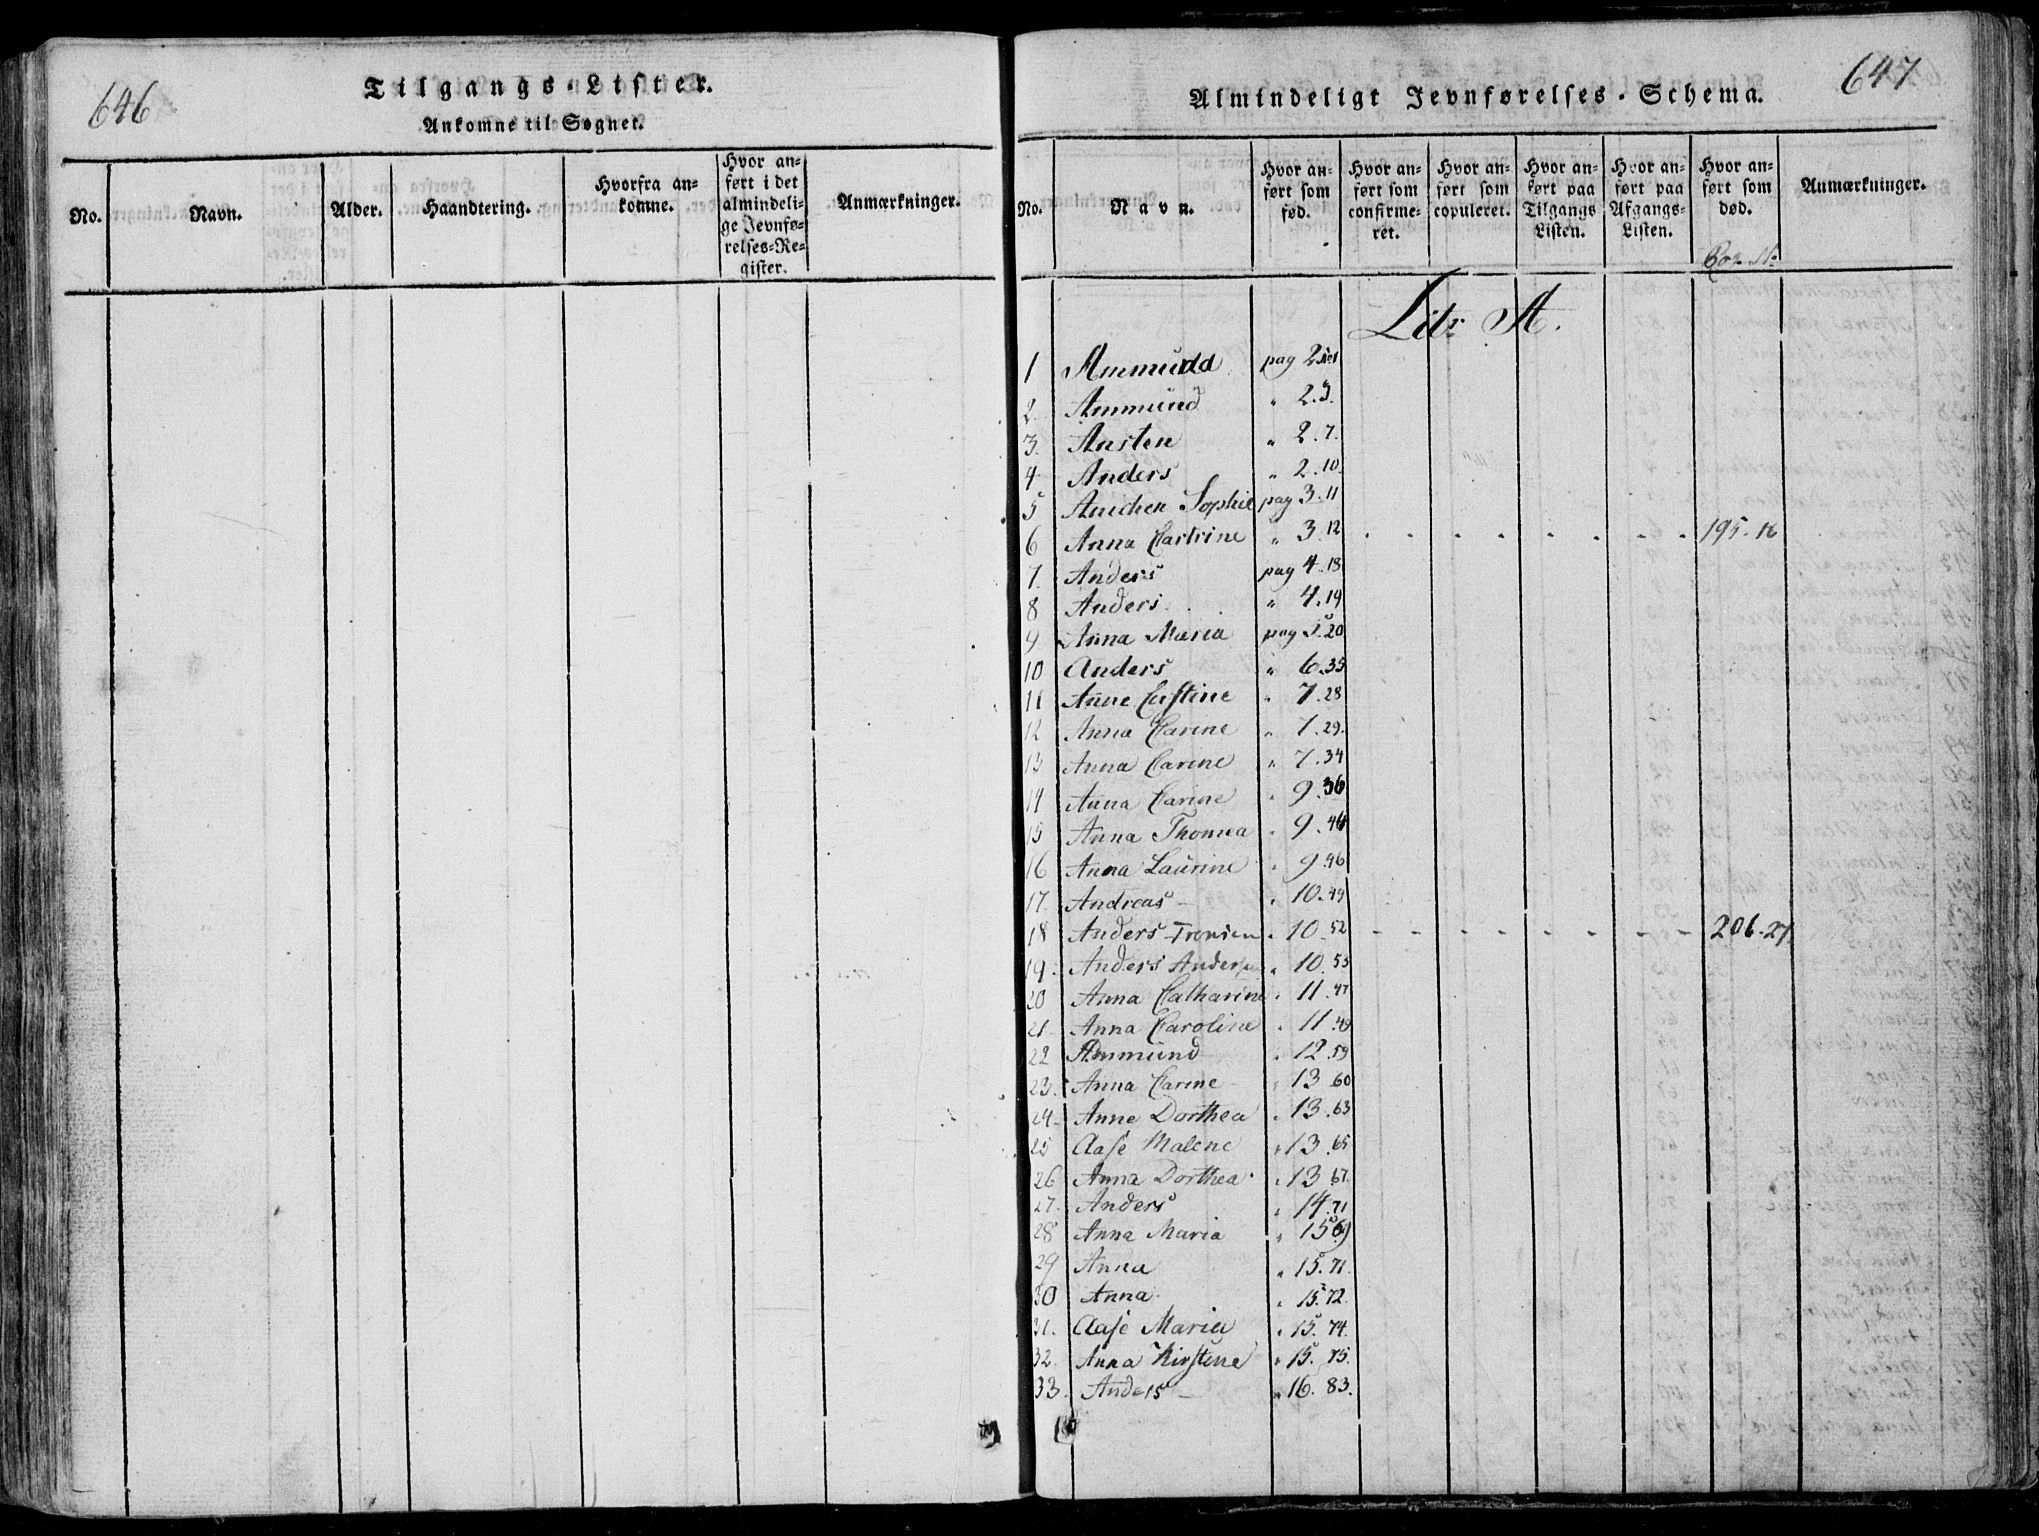 646
Tilgangs-Lister.
Ankomne til Sognet.
No.
Navn.
Alder.
Haandtering.
Hvorfra an-
komne.
Hvor an-
ført i det
almindeli-
ge Jevnfø-
relses-Re-
gister.
Anmærkninger.
647
Almindeligt Jevnførelses-Schema.
No.
Navn.
Hvor an-
ført som
fød.
Hvor an-
ført som
confirme-
ret.
Hvor an-
ført som
copuleret.
Hvor an-
ført paa
Tilgangs
Listen.
Hvor an-
ført paa
Afgangs-
Listen.
Hvor an-
ført som
død.
Anmærkninger.
Litr A.
1 Ammudd pag 2
2. Ammund " 2.3.
3. Ansten " 2.7.
4 Anders " 2.10.
5 Anichen Sophie pag 3.11
6 Anna Cartrine " 3.12 195.16
7. Anders pag 4.18
8 Anders " 4.19
9 Anna Maria pag 5.20
10 Anders " 6.35
11 Anne Cestine " 7.28
12 Anna Carine " 7.29.
13 Anna Carine " 7.34
14 Anna Carine " 9.36
15 Anna Thomea " 9.46
16 Anna Laurine " 9.46
17. Andreas - " 10.49
18 Anders Tronsen " 10.52 206.27
19. Anders Andersen " 10.53
20 Anna Catharine " 11.47
21. Anna Caroline " 11.49
22 Ammund " 12.59
23. Anna Carine - " 13 60
24. Anne Dorthea " 13.63
25 Aase Malene " 13.65
26 Anna Dorthea " 13 67.
27. Anders " 14.71
28 Anna Maria " 15 69
29 Anna " 15.71.
30 Anna " 15.72.
31. Aase Maria " 15.74.
32. Anna Kirstine " 15.75.
33. Anders - " 16.83.